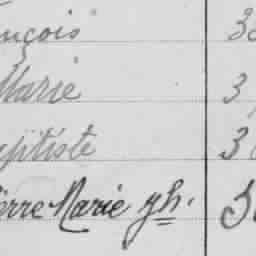 nçois 3
Marie 3
aptiste 3
ierre Marie yh. 3